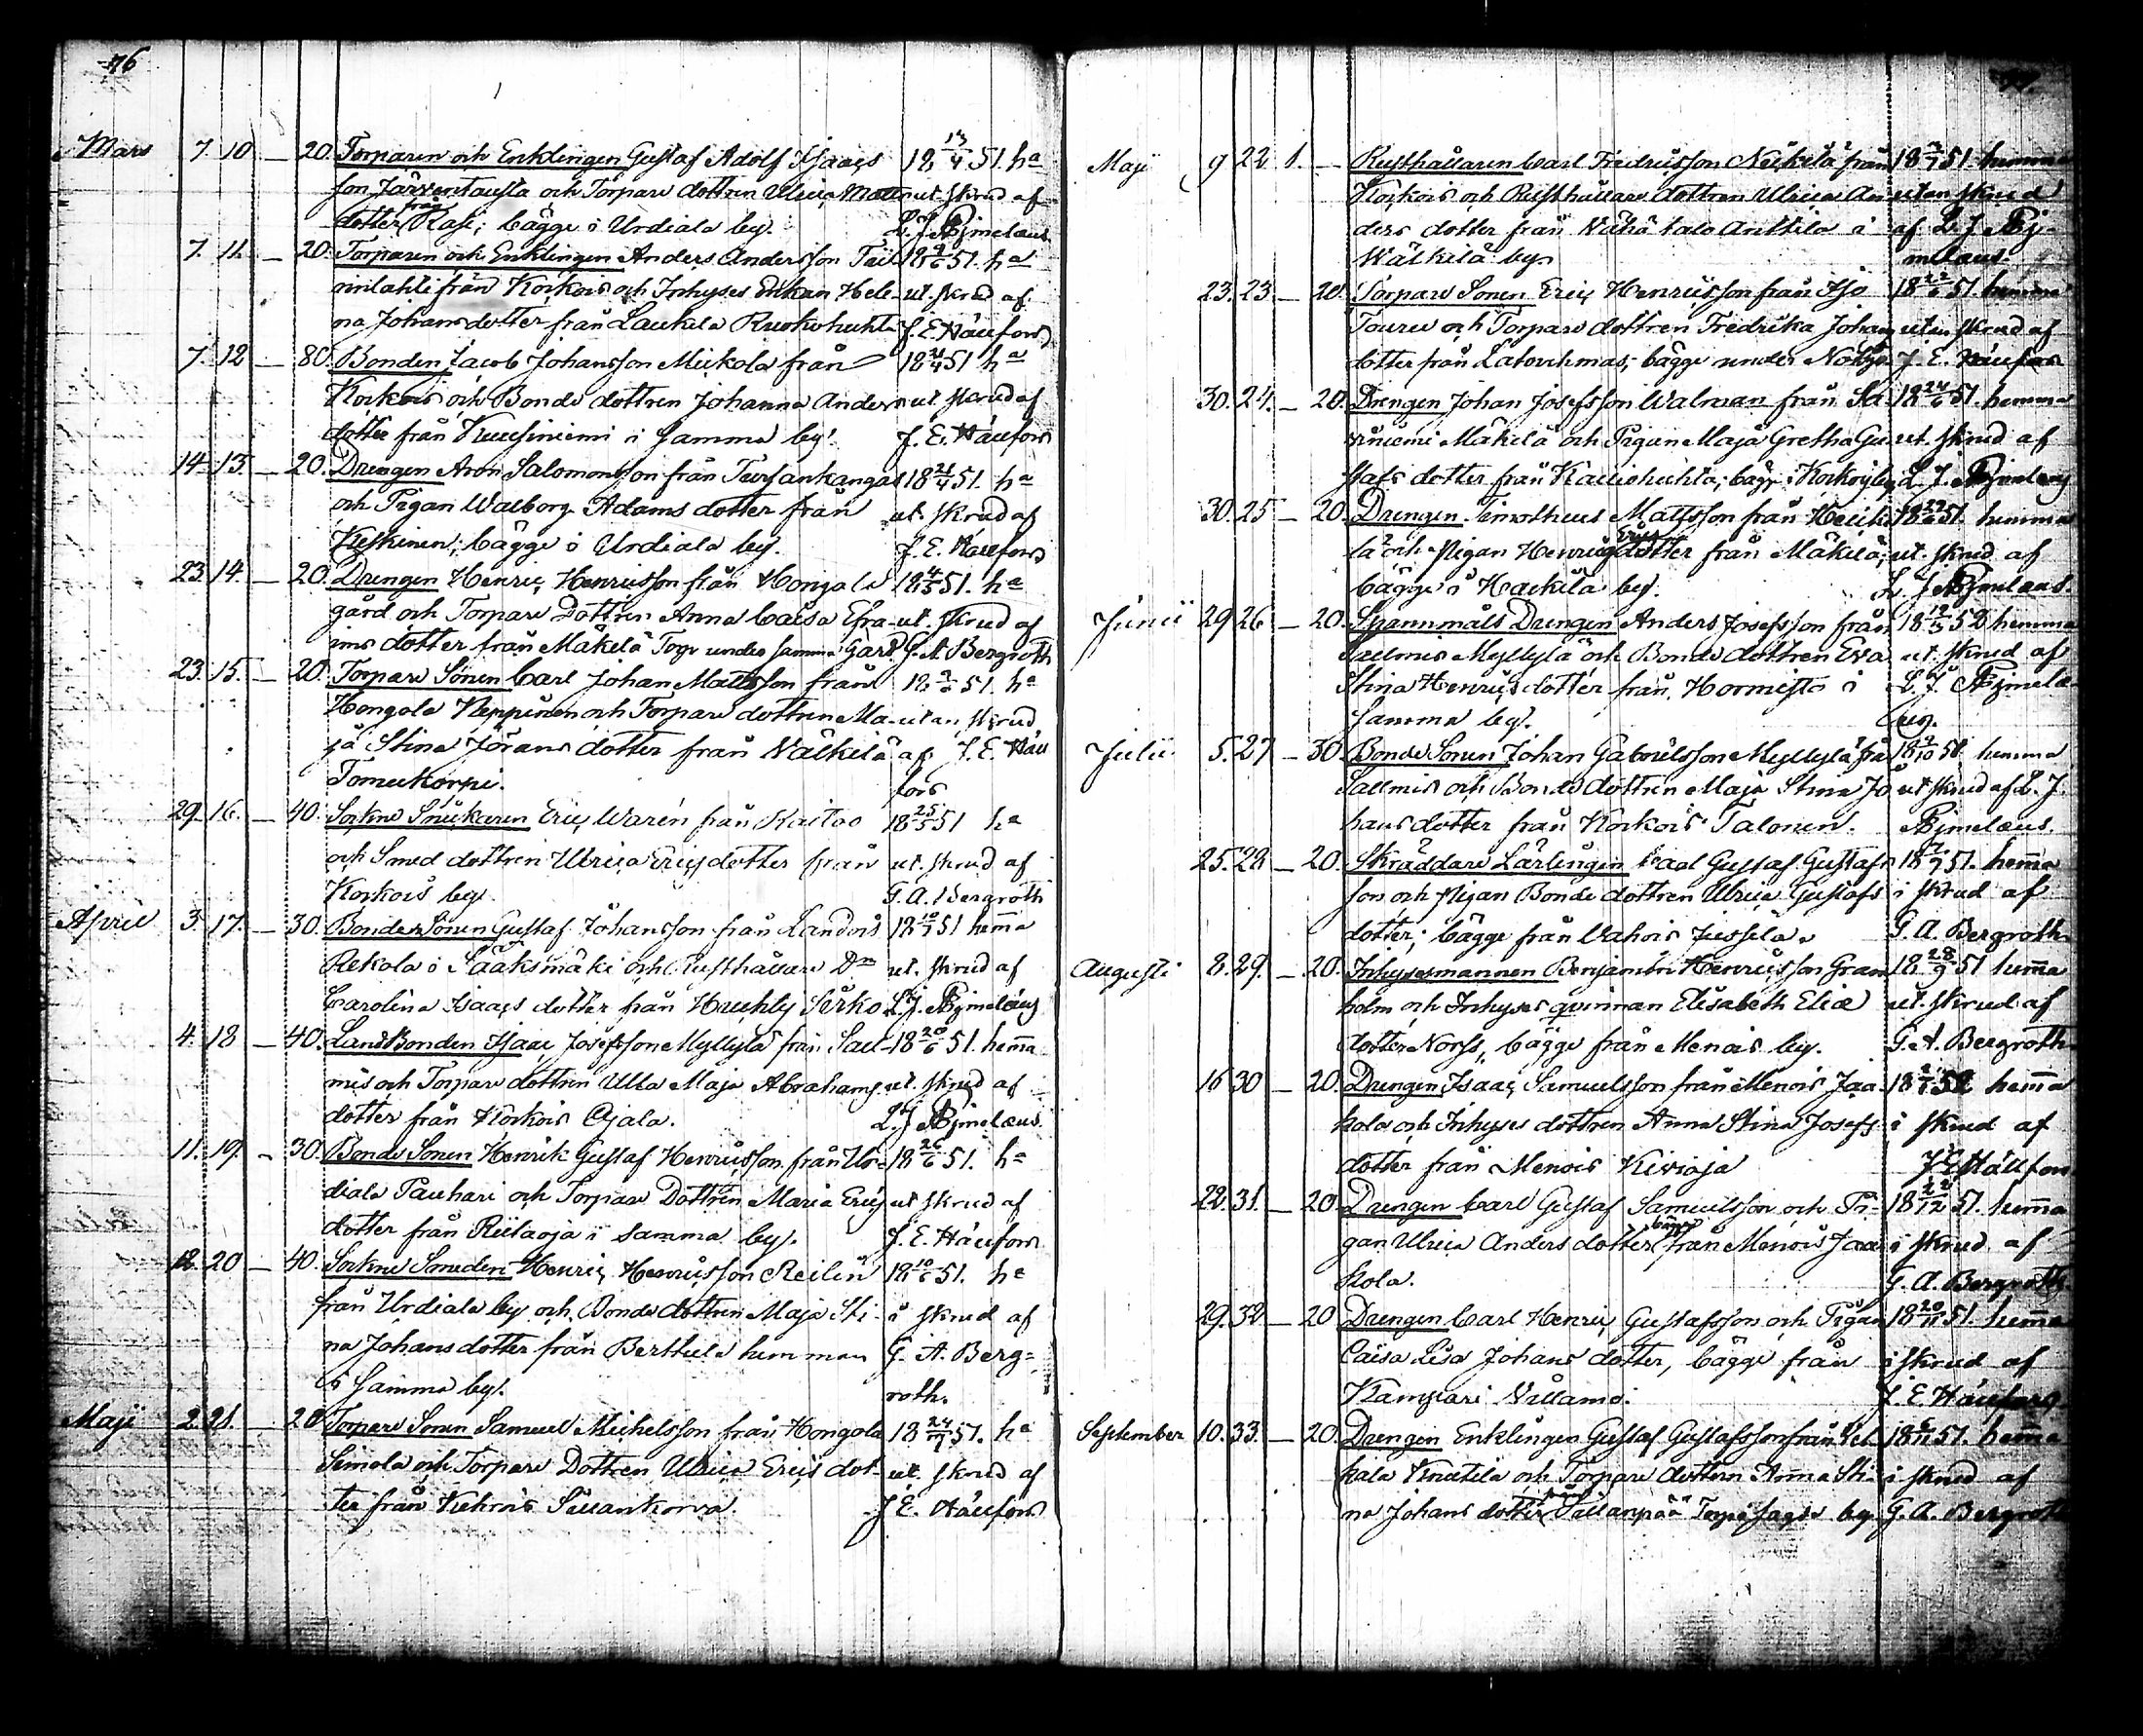 76
Mars 7. 10 — 20. Torparen och Enklingen Gustaf Adolf Isaacs 18 13/4 51. ha
son Järventausta och Torpare dottren Ulrica Matts ut. skrud af
dotter från Rasi; bägge i Urdiala by. L. J. Äjmelæus
7. 11. — 20. Torparen och Enklingen Anders Andersson 18 9/6 51. ha
från Korkois och Inhyses Enkan Hele- ut. skrud af
na Johansdotter från Laukela Ruokohuhta J. E. Hällfors
7. 12 — 80. Bonden Jacob Johansson Mickola från 18 21/4 51 ha
Korkois och Bonde dottren Johanna Anders ut. skrud af
dotter från Kuusiniemi i samma by. J. E. Hällfors
14. 13. — 20. Drengen Aron Salomonsson från Tursankangas 18 21/4 51. ha
och Pigan Walborg Adams dotter från ut. skrud af
Keskinen; bägge i Urdiala by. J. E. Hällfors
23. 14. — 20. Drengen Henric Henricsson från Hongola 18 4/5 51. ha
gård och Torpare Dottren Anna Caisa Efra- ut. skrud af
ims dotter från Mäkelä Torp under samma Gård. G. A. Bergroth
23. 15. — 20. Torpare Sonen Carl Johan Mattsson från 18 9/6 51. ha
Hongola Keppinen och Torpare dottren Ma- utan skrud
ja Stina Jörans dotter från Nälkilä af J. E. Häll
Tomukorpi. fors
29. 16. — 40. Sockne Snickaren Eric Warén från Kaitoo 18 25/5 51 ha
och Smed dottren Ulrica Ericsdotter från ut. skrud af
Korkois by. G. A. Bergroth
April 3. 17. — 30. Bonde Sonen Gustaf Johansson från Landois 18 10/7 51 hema
Rekola i Sääksmäki och Rusthållare Dn ut. skrud af
Carolina Isaacs dotter från Huhti Sirko L. J. Äjmelæus
4. 18 — 40. Landbonden Isaac Josefsson Myllylä från Sal- 18 20/6 51. hema
mis och Torpare dottren Ulla Maja Abrahams ut. skrud af
dotter från Korkois Ojala. L. J. Äjmelæus
11. 19. — 30. Bonde Sonen Henrik Gustaf Henricsson från Ur- 18 26/6 51. ha
diala Pauhari och Torpare Dottren Maria Erics ut skrud af
dotter från Riitaoja i samma by. J. E. Hällfors
18. 20 — 40. Sockne Smeden Henric Henricsson Reilin 18 10/6 51. ha
från Urdiala by och Bonde dottren Maja Sti- i skrud af
na Johansdotter från Berttula hemman G. A. Berg-
i samma by. roth.
Maji 2. 21. — 20 Torpare Sonen Samuel Michelsson från Hongola 18 24/7 51. ha
Simola och Torpare Dottren Ulrica Erics dot- ut. skrud af
ter från Kehrois Sillankorva. J. E. Hällfors
77.
Maji 9 22 1. — Rusthållaren Carl Fredricsson Näkilä från 18 51. hemma
Korkois och Rusthållare dottren Ulrica An utan skrud
ders dotter från Vähä talo Anttila i af L. J. Äj-
Wälkilä by melæus.
23. 23 — 20. Torpare Sonen Eric Henricsson från 18 22/6 51. hemma
och Torpare dottren Fredrika Johans utan skrud af
dotter från Latovehmas; bägge under J. E. Hällfors
30. 24. — 20. Drengen Johan Josefsson Walman från Sa- 18 24/6 51. hemma
riniemi Mäkilä och Pigan Maja Gretha Gu ut. skrud af
stafs dotter från bägge i Korkois by L. J. Äjmelæus
30. 25 — 20. Drengen Timotheus Mattsson från 18 51. hemma
lä och Pigan Henrica Erics dotter från Mäkilä, ut. skrud af
bägge i by. L. J. Äjmelæus.
Junii 29 26 — 20. Spannmåls Drengen Anders Josefsson från 18 12/3 52 hemma
Salmis Myllylä och Bonde dottren Eva ut. skrud af
Stina Henricsdotter från Hormisto i L. J. Äjmelæ
samma by. us.
Julii 5. 27 — 30. Bonde Sonen Johan Gabrielsson Myllylä från 18 51 hemma
Salmis och Bonde dottren Maja Stina Jo ut skrud af L. J.
hansdotter från Korkois Talonen. Äjmelæus.
25. 28 — 20. Skräddare Lärlingen Carl Gustaf Gustafs 18 51. hema
son och Pigan Bonde dottren Ulrica Gustafs i skrud af
dotter; bägge från Vahois Jussila. G. A. Bergroth
Augusti 8. 29. — 20. Inhysesmannen Benjamin Henricsson Gran 18 28/9 51 hema
holm och Inhyses qvinnan Elisabeth Eliæ ut. skrud af
dotter Norss, bägge från Menois by. G. A. Bergroth
16 30 — 20. Drengen Isaac Samuelsson från Menois Jaa 18 52 hema
kola och Inhyses dottren Anna Stina Josefs i skrud af
dotter från Menois Kivioja J. E. Hällfors
22. 31. — 20 Drengen Carl Gustaf Samuelsson och Pi- 18 22/12 51. hema
gan Ulrica Anders dotter, bägge från Menois Jaa i skrud af
kola. G. A. Bergroth
29. 32 — 20 Drengen Carl Henric Gustafsson och Pigan 18 20/11 51. hema
Caisa Lisa Johans dotter, bägge från i skrud af
Kamppari Nuutamo. J. E. Hällfors
September 10. 33. — 20. Drengen Enklingen Gustaf Gustafsson från 18 51. hema
kala Knuutila och Torpare dottern Anna Sti- i skrud af
na Johans dotter från Sillanpää Torp i Jagda by G. A. Bergroth